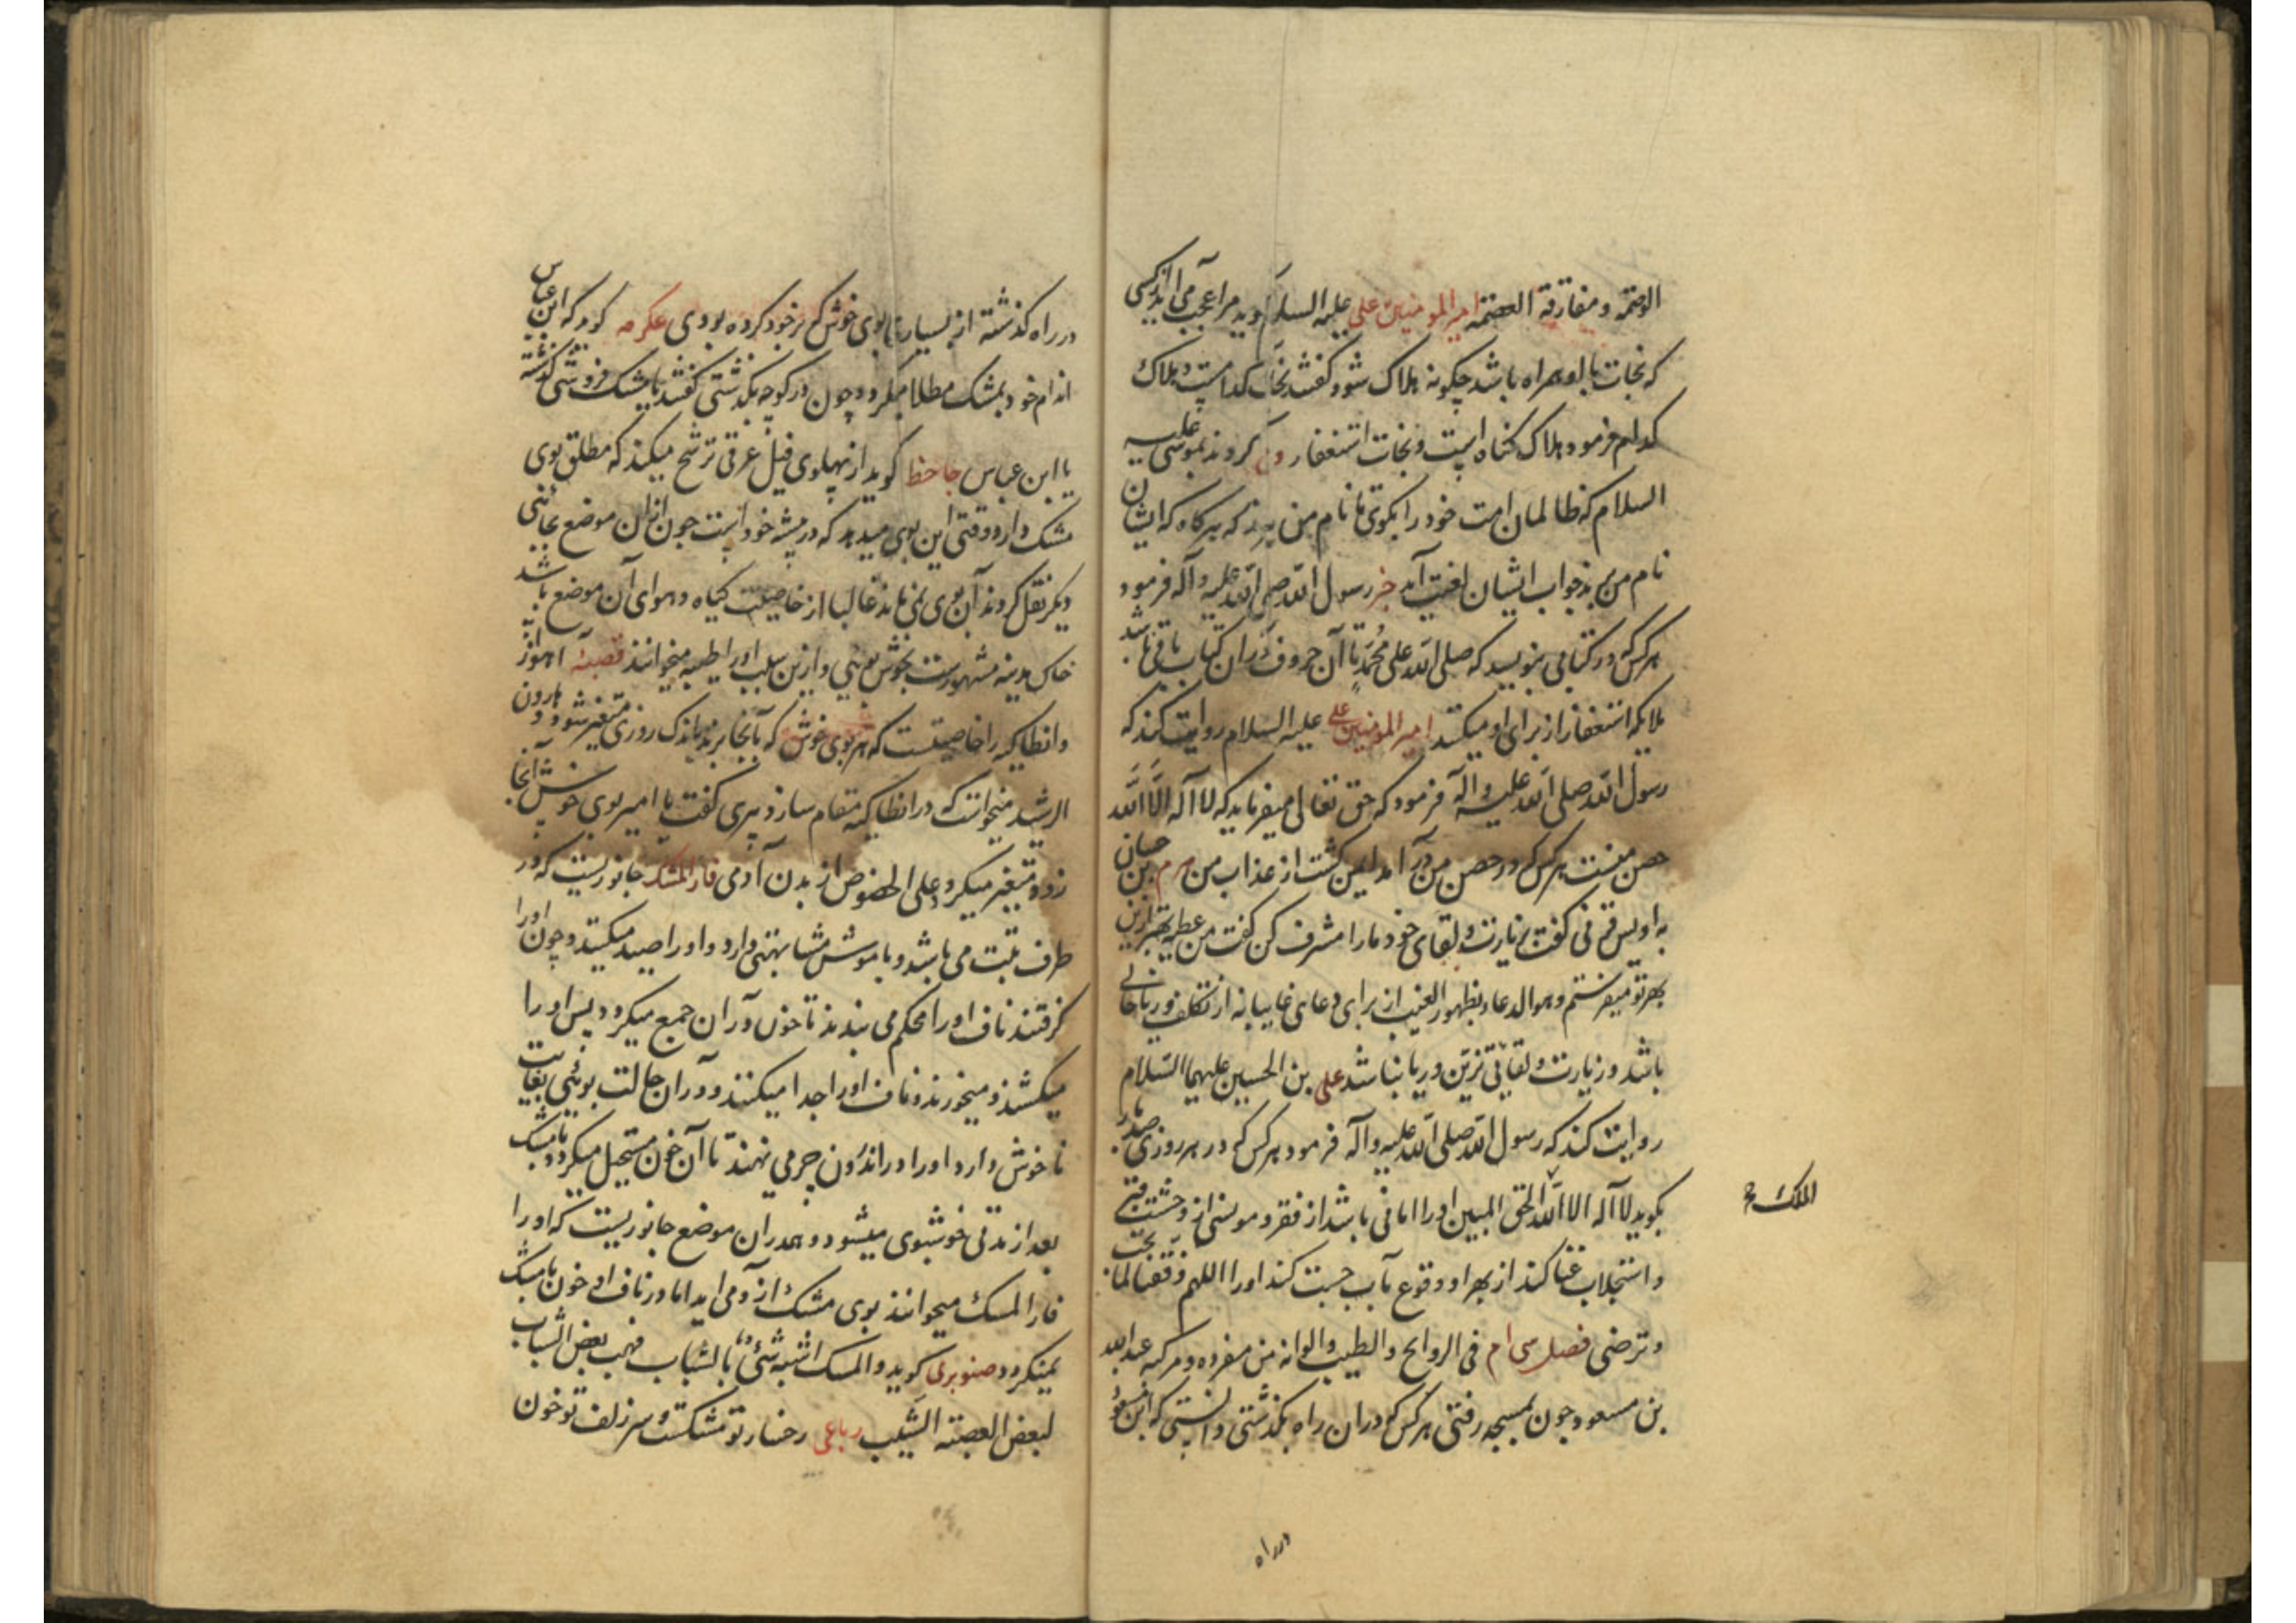 الوصمه ومفارقة العصمه امیر المومنین علی علیه السلام کوید مرا عجب می آید از کسی
که نجات با او همراه باشد چکونه هلاک شود کفتند نجات کدامست و هلاک
کدام فرمود هلاک کناه است و نجات استغفار کردند بموسی علیه
السلام که ظالمان امت خود را بکوی تا نام من نبرند که هرکاه که ایشان
نام من برند جواب ایشان لعنت آمد خبر رسول الله صلی الله علیه وآله فرمود
هرکس که در کتابی بنویسد که صلی الله علی محمد تا آن حروف در آن کتاب باقی باشد
ملایکه استغفار از برای او میکنند امیر المومنین علی علیه السلام روایت کند که
رسول الله صلی الله علیه وآله فرمود که حق تعالی میفرماید که لا اله الا الله
حصن منست هرکس که در حصن من در آمد ایمن کشت از عذاب من هرم بن حیان
به اویس قرنی کفت بزیارت و لقای خود ما را مشرف کن کفت من عطیه بهتر ازین
بهر تو میفرستم وهو الدعاء بظهور الغیب از برای دعای غایبانه از تکلف و ریا خالی
باشد و زیارت و لقا بی تزین و ریا نباشد علی بن الحسین علیهما السلام
روایت کند که رسول الله صلی الله علیه وآله فرمود هرکس که در هر روزی صد بار
بکوید لا اله الا الله الحق المبین او را امانی باشد از فقر و مونسی از وحشت قبر
الملک
و استجلاب غنا کند از بهر او و قوع باب جنت کند او را اللهم وفقنا لما تحب
وترضی فصل سی ام فی الروایح والطیب والوانه من مفرده ومرکبه عبد الله
بن مسعود چون بمسجد رفتی هرکس که در آن راه بکذشتی دانستی که ابن مسعود
در راه
در راه کذشته از بسیار بوی خوش که بر خود کرده بودی عکرمه کوید که ابن عباس
اندام خود بمشک مطلا میکرد و چون در کوچه بکذشتی کفتند یا مشک فروشی کذشته
یا ابن عباس جاحظ کوید از پهلوی فیل عرقی ترشح میکند که مطلق بوی
مشک دارد وقتی این بوی میدهد که در بیشه خود است چون از آن موضع بجائی
دیکر نقل کردند آن بوی نمی ماند غالبا از خاصیت کیاه و هوای آن موضع باشد
خاک مدینه مشهورست بخوش بویی و ازین سبب او را طیبه میخوانند قصبهٔ اهواز
و انطاکیه را خاصیتست که هر بوی خوش که بآنجا برند باندک روزی متغیر شود و هارون
الرشید میخواست که در انطاکیه مقام سازد پیری کفت یا امیر بوی خوش آنجا
زود متغیر میکردد علی الخصوص از بدن آدمی فارة المشک جانوریست که در
طرف تبت می باشد و با موش مشابهتی دارد و او را صید میکنند و چون او را
کرفتند ناف او را محکم می بندند تا خون در آن جمع میکردد پس او را
میکشند و میخورند و ناف او را جدا میکنند و در آن حالت بوئی بغایت
ناخوش دارد او را در اندرون چرمی نهند تا آن خون مستحیل میکردد بمشک
بعد از مدتی خوشبوی میشود و همدران موضع جانوریست که او را
فارة المسک میخوانند بوی مشک ازو می اید اما در ناف او خون بامشک
نمیکردد صنوبری کوید والمسک اشبه شیء بالشباب فهب بعض الشباب
لبعض العصبة الشیب رباعی رخسار تو مشکست و سر زلف تو خون